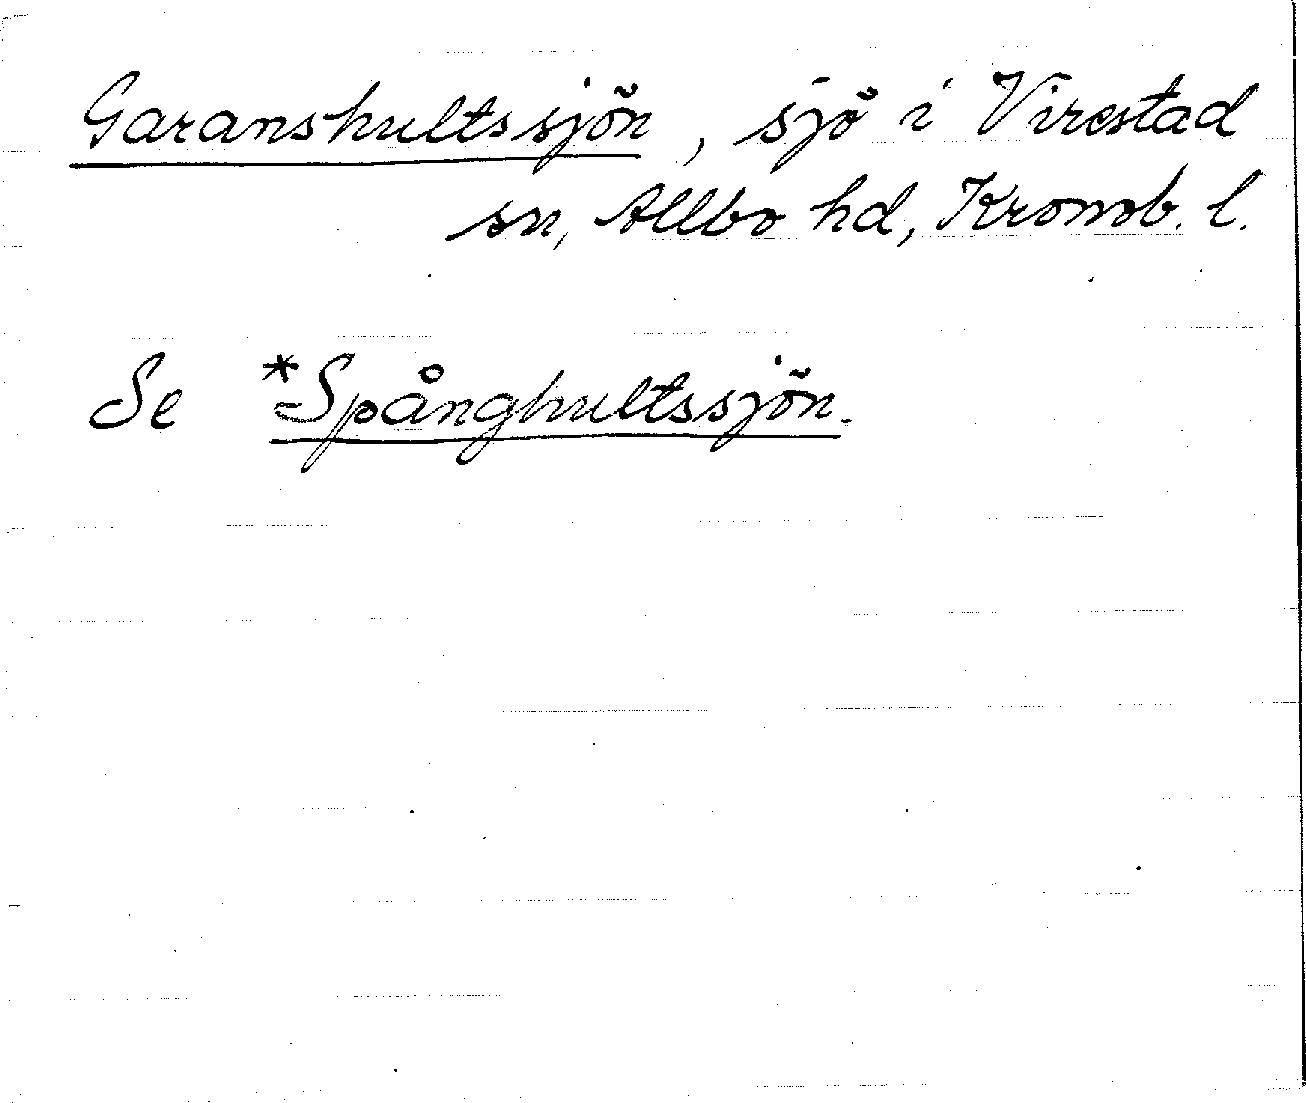 Garanshultssjön, sjö i Virestad
sn, Allbo hd, Kronob. l.
Se *Spånghultssjön.